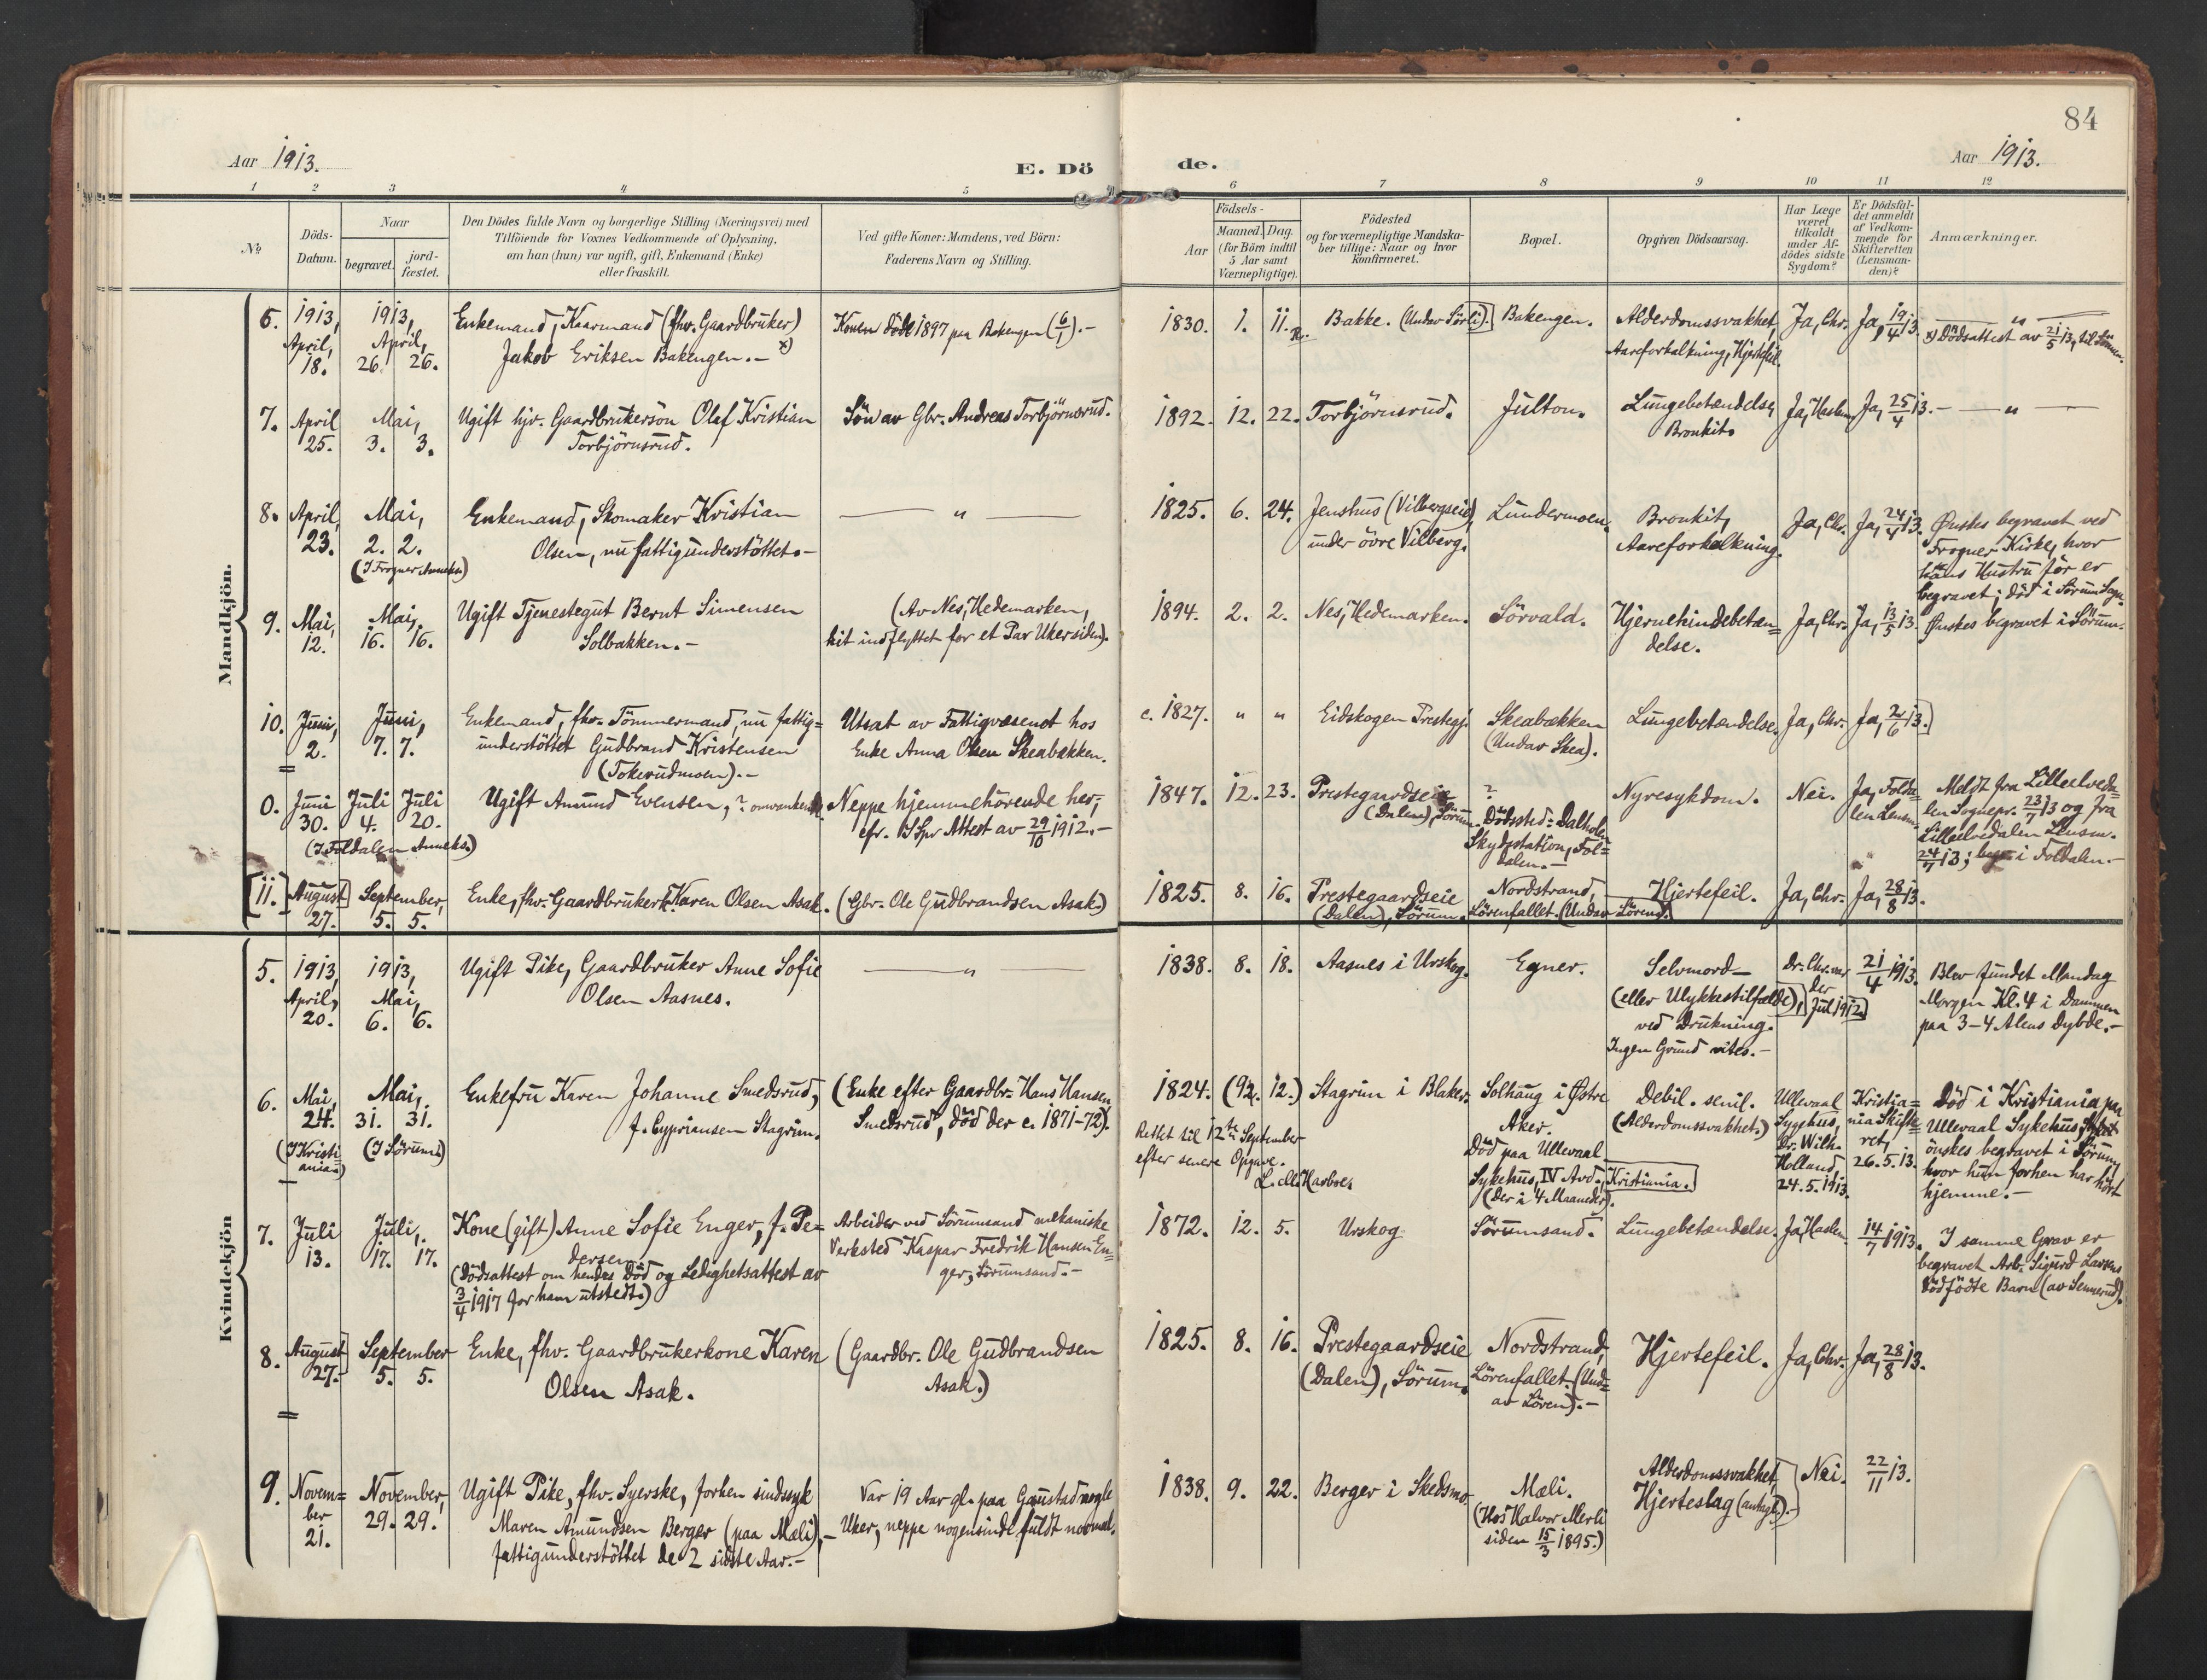 84
Aar 1913.
E. Dö
de.
Aar 1913.
1 2 3 4 5
6 7 8 9 10 11 12
No
Döds-
Datum.
Naar
begravet.
jord-
fæstet.
Den Dödes fulde Navn og borgerlige Stilling (Næringsvei) med
Tilföiende for Voxnes Vedkommende af Oplysning,
om han (hun) var ugift, gift, Enkemand (Enke)
eller fraskilt.
Ved gifte Koner: Mandens, ved Börn:
Faderens Navn og Stilling.
Födsels-
Aar
Maaned. Dag.
(for Börn indtil
5 Aar samt
Værnepligtige).
Födested
og for værnepligtige Mandska-
ber tillige: Naar og hvor
konfirmeret.
Bopæl.
Opgiven Dödsaarsag.
Har Læge
været
tilkaldt
under Af-
dödes sidste
Sygdom?
Er Dödsfal-
det anmeldt
af Vedkom-
mende for
Skifteretten
(Lensman-
den)?
Anmærkninger.
Mandkjön.
6.
1913,
April,
18.
1913,
April,
26. 26.
Enkemand, Kaarmand (fhv. Gaardbruker)
Jakob Eriksen Bakengen.- x)
Konen döde 1897 paa Bakengen (6/1).-
1830. 1. 11.
Bakke. (Undav Sörli).
Bakengen.
Alderdomssvakhet,
Aareforkalkning, Hjertefeil.
Ja, Chr.
Ja, 19/4 13.
— " —
x) Dödsattest av 21/5 13, til Sönnen.
7.
April
25.
Mai,
3. 3.
Ugift hjv. Gaardbrukersön Olaf Kristian
Torbjörnsrud.
Sön av Gbr. Andreas Torbjörnsrud.
1892. 12. 22.
Torbjörnsrud.
Julton.
Lungebetændelse,
Bronkit.
Ja, Haslem
Ja, 25/4 13.
— " —
8.
April,
23.
Mai,
2. 2.
(I Frogner Anneks.)
Enkemand, Skomaker Kristian
Olsen, nu fattigunderstöttet.-
— " —
1825. 6. 24.
Jenshus (Vilbergseie)
under övre Vilberg.
Lundermoen.
Bronkit,
Aareforkalkning.
Ja, Chr.
Ja, 24/4 13.
Ønskes begravet ved
Frogner Kirke, hvor
hans Hustru för er
begravet; död i Sörum Sogn.
9.
Mai,
12.
Mai,
16. 16.
Ugift Tjenestegut Bernt Simensen
Solbakken.-
(Av Nes, Hedemarken,
hit indflyttet for et Par Uker siden).
1894. 2. 2.
Nes, Hedemarken.
Sörvald.
Hjernehindebetæn=
delse.
Ja, Chr.
Ja, 13/5 13.
Ønskes begravet i Sörum.
10.
Juni,
2.
Juni,
7. 7.
Enkemand, fhv. Tömmermand, nu fattig=
understöttet Gudbrand Kristensen
(Tokerudmoen).-
Utsat av Fattigvæsenet hos
Enke Anna Olsen Skeabækken.
c. 1827. " "
Eidskogen Prestegj.
Skeabækken
(Undav Skea).
Lungebetændelse.
Ja, Chr.
Ja, 2/6 13.
0.
Juni
30.
Juli
4.
Juli
20.
(I Foldalen Anneks.)
Ugift Amund Evensen, ? omvankende.
Neppe hjemmehörende her;
cfr. S Spr Attest av 29/10 1912.-
1847. 12. 23.
Prestegaardseie
(Dalen), Sörum.
?
Dödssted: Dalholen
Skydsstation, Fol=
dalen.-
Nyresykdom.
Nei.
Ja, Folda=
len Lensm.
Meldt fra Lilleelveda=
len Sognepr. 23/7 13 og fra
Lilleelvedalen Lensm.
24/7 13; begr. i Foldalen.-
[11.]
August
27.
September,
5. 5.
Enke, fhv. Gaardbrukerk. Karen Olsen Asak.
(Gbr. Ole Gudbrandsen Asak.)
1825. 8. 16.
Prestegaardseie
(Dalen), Sörum.
Nordstrand,
Lörenfallet. (Undav Lörend.)
Hjertefeil.
Ja, Chr.
Ja, 28/8 13.
Kvindekjön
5.
1913,
April,
20.
1913,
Mai,
6. 6.
Ugift Pike, Gaardbruker Anne Sofie
Olsen Aasnes.
— " —
1838. 8. 18.
Aasnes i Urskog.
Egner.
Selvmord-
(eller Ulykkestilfælde),
ved Drukning.
Ingen Grund vites.-
Dr. Chr. var
der
Jul 1912
21/4 1913.
Blev fundet Mandag
Morgen Kl. 4 i Dammen
paa 3-4 Alens Dybde.-
6.
Mai,
24.
(I Kristi-
ania)
Mai,
31. 31.
(I Sörum)
Enkefru Karen Johanne Smedsrud,
f. Cypriansen Stagrim.
(Enke efter Gaardbr. Hans Hansen
Smedsrud, död der c. 1871-72).
1824. (92. 12.)
Rettet til 12te September
efter senere Opgave.
Stagrim i Blaker.
Solhaug i Østre
Aker.
Död paa Ullevaal
Sykehus, IV Avd., Kristiania.
(Der i 4 Maaneder).
Debil. senil.
(Alderdomssvakhet.)
Ullevaal
Sygehus,
Dr. Wilh.
Holland,
24.5.1913.
Kristia=
nia Skifte=
ret,
26.5.13.
Död i Kristiania paa
Ullevaal Sykehus,
önskes begravet i Sörum,
hvor hun forhen har hört
hjemme.-
7.
Juli
13.
Juli,
17. 17.
Kone (gift) Anne Sofie Enger, f. Pe=
dersen
(Dödsattest om hendes Död og Ledighetsattest av
3/4 1917 for ham utstedt.)
Arbeider ved Sörumsand mekaniske
Verksted Kaspar Fredrik Hansen En=
ger, Sörumsand.-
1872. 12. 5.
Urskog
Sörumsand.
Lungebetændelse.
Ja, Haslem
14/7 1913.
I samme Grav er
begravet Arb. Sigurd Larsens
dödfödte Barn (av Sennerud).
8.
August
27.
September
5. 5.
Enke, fhv. Gaardbrukerkone Karen
Olsen Asak.
(Gaardbr. Ole Gudbrandsen
Asak.)
1825. 8. 16.
Prestegaardseie
(Dalen), Sörum.
Nordstrand,
Lörenfallet. (Und=
av Lören).-
Hjertefeil.
Ja, Chr.
Ja, 28/8 13.
9.
Novem=
ber
21.
November,
29. 29.
Ugift Pike, fhv. Syerske, forhen sindssyk
Maren Amundsen Berger (paa Mæli),-
fattigunderstöttet de 2 sidste Aar.-
Var 19 Aar gl. paa Gaustad nogle
Uker, neppe nogensinde fuldt normal.
1838. 9. 22.
Berger i Skedsmo.
Mæli.
(Hos Halvor Merli
siden 15/3 1895.)
Alderdomssvakhet,
Hjerteslag (antagl.).-
Nei.
22/11 13.